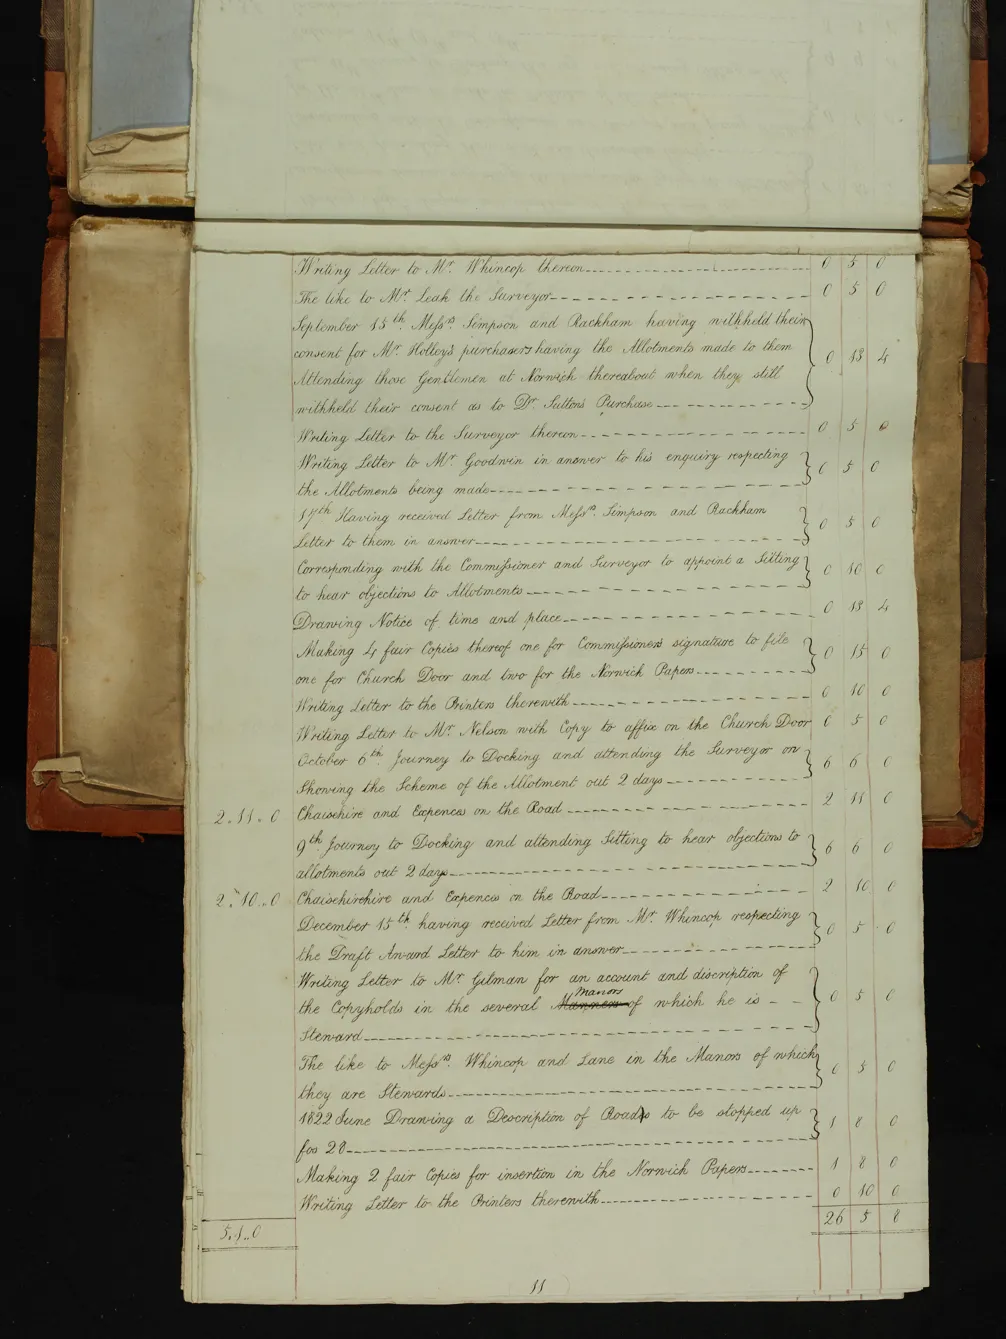 Writing Letter to Mr. Whincop thereon 0 5 0
The like to Mr. Leak the Surveyor 0 5 0
September 15th. Messrs. Simpson and Rackham having withheld their
consent for Mr. Holley's purchasers having the Allotments made to them
Attending those Gentlemen at Norwich thereabout when they still
withheld their consent as to Dr. Suttons Purchase 0 13 4
Writing Letter to the Surveyor thereon 0 5 0
Writing Letter to Mr. Goodwin in answer to his enquiry respecting
the Allotments being made 0 5 0
17th Having received Letter from Messrs. Simpson and Rackham
Letter to them in answer 0 5 0
Corresponding with the Commissioner and Surveyor to appoint a Sitting
to hear objections to Allotments 0 10 0
Drawing Notice of time and place 0 13 4
Making 4 fair Copies thereof one for Commissioners signature to file
one for Church Door and two for the Norwich Papers 0 15 0
Writing Letter to the Printers therewith 0 10 0
Writing Letter to Mr. Nelson with Copy to affix on the Church Door 0 5 0
October 6th. Journey to Docking and attending the Surveyor on
Showing the Scheme of the Allotment out 2 days 6 6 0
2.11.0 Chaisehire and Expences on the Road 2 11 0
9th Journey to Docking and attending Sitting to hear objections to
allotments out 2 days 6 6 0
2.10.0 Chaisehirehire and Expences on the Road 2 10 0
December 15th. having received Letter from Mr. Whincop respecting
the Draft Award Letter to him in answer 0 5 0
Writing Letter to Mr. Gilman for an account and discription of
the Copyholds in the several Manners Manors of which he is
Steward 0 5 0
The like to Messrs. Whincop and Lane in the Manors of which
they are Stewards 0 5 0
1822 June Drawing a Description of Roads to be stopped up
fos 28 1 8 0
Making 2 fair Copies for insertion in the Norwich Papers 1 8 0
Writing Letter to the Printers therewith 0 10 0
5.1.0 26 5 8
11